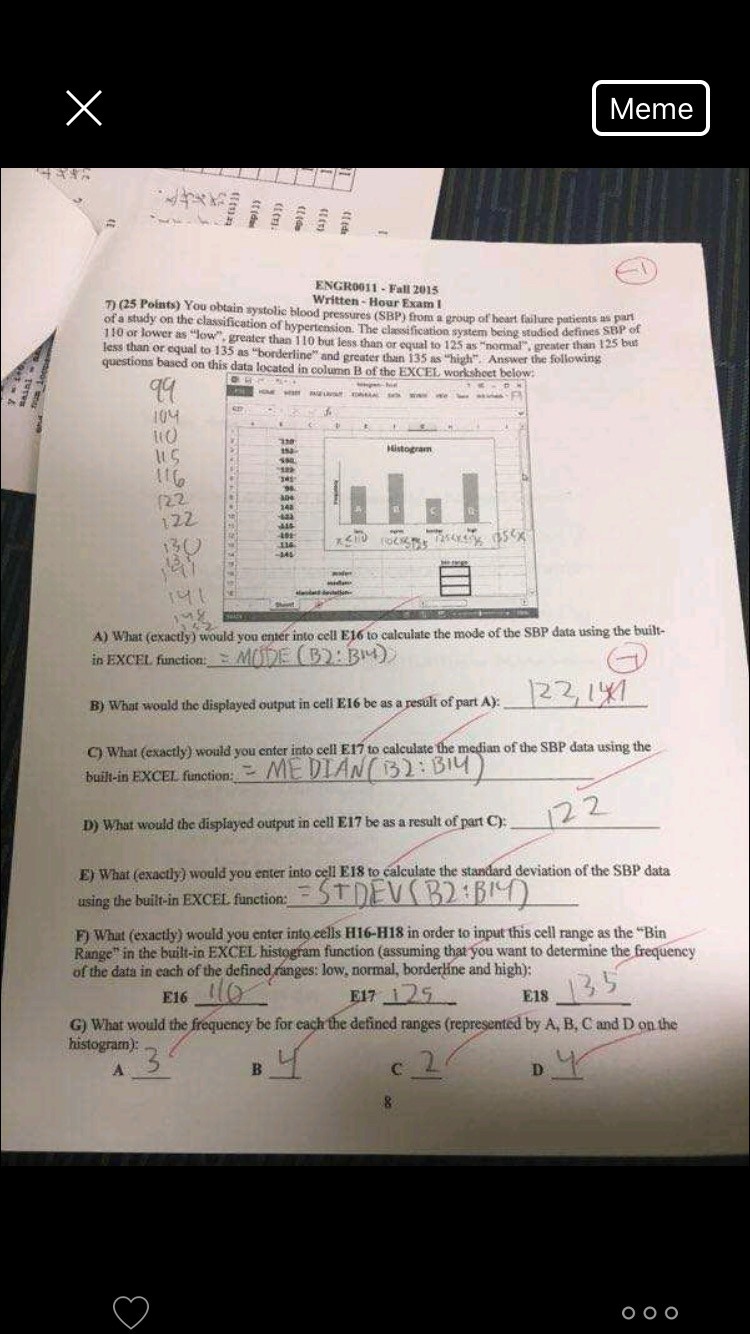 Meme
ENGR0011 - Fall 2015
Written - Hour Exam I
-1
7) (25 Points) You obtain systolic blood pressures (SBP) from a group of heart failure patients as part
of a study on the classification of hypertension. The classification system being studied defines SBP of
110 or lower as “low”, greater than 110 but less than or equal to 125 as “normal”, greater than 125 but
less than or equal to 135 as “borderline” and greater than 135 as “high”. Answer the following
questions based on this data located in column B of the EXCEL worksheet below:
99
104
110
115
116
122
122
130
131
141
141
148
152
HOME INSERT PAGE LAYOUT FORMULAS DATA REVIEW VIEW
Histogram
Frequency
A B C D
low normal border high
mode=
median=
standard deviation=
bin range
Sheet1
A) What (exactly) would you enter into cell E16 to calculate the mode of the SBP data using the built-
in EXCEL function: = MODE (B2:B14)
-1
B) What would the displayed output in cell E16 be as a result of part A): 122, 141
C) What (exactly) would you enter into cell E17 to calculate the median of the SBP data using the
built-in EXCEL function: = MEDIAN(B2:B14)
D) What would the displayed output in cell E17 be as a result of part C): 122
E) What (exactly) would you enter into cell E18 to calculate the standard deviation of the SBP data
using the built-in EXCEL function: =STDEV(B2:B14)
F) What (exactly) would you enter into cells H16-H18 in order to input this cell range as the “Bin
Range” in the built-in EXCEL histogram function (assuming that you want to determine the frequency
of the data in each of the defined ranges: low, normal, borderline and high):
E16 110 E17 125 E18 135
G) What would the frequency be for each the defined ranges (represented by A, B, C and D on the
histogram):
A 3 B 4 C 2 D 4
8